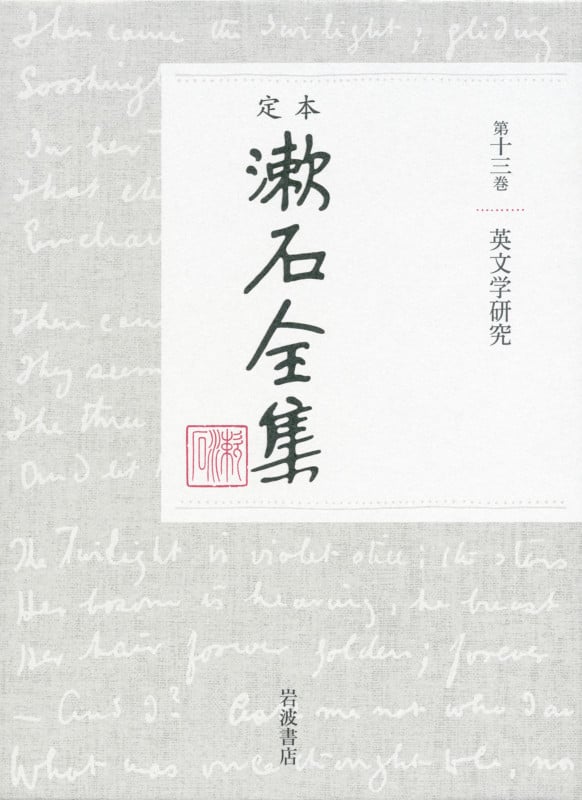 Then came the Twilight; gliding
Soothingly
In her
That
Enchan
定本
漱石全集
漱石
第十三巻
英文学研究
There came
They seem
The three
And it
The Twilight is violet still; the stars
Her bosom is heaving, he breast
Her hair forever golden; forever
And I? Ask me not who I am
What was once thought ble, no
岩波書店